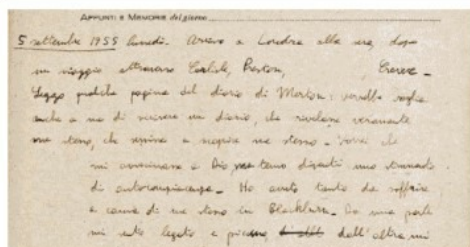 APPUNTI E MEMORIE del giorno
5 settembre 1955 lunedì. Arrivo a Londra alla sera, dopo
un viaggio attraverso Carlisle, Preston, Crewe -
Leggo qualche pagina del diario di Merton: verrebbe voglia
anche a me di scrivere un diario, che rivelasse veramente
me stesso, che a scoprire me stesso - Vorrei che
mi avvicinasse a Dio, ma temo diventi uno strumento
di autocompiacenza - Ho avuto tanto da soffrire
a causa di me stesso in Blackburn. Da una parte
mi sento legato e dall'altra mi